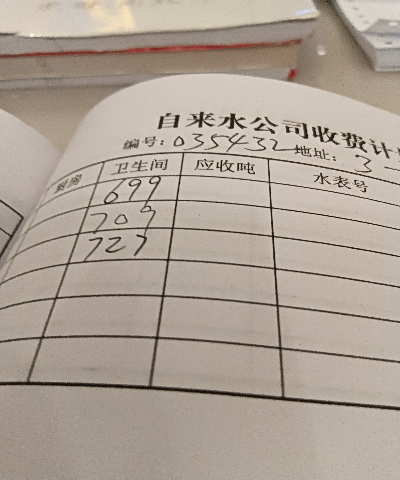 自来水公司收费计
编号:035432 地址: 3
厨房 卫生间 应收吨 水表号
699
709
727